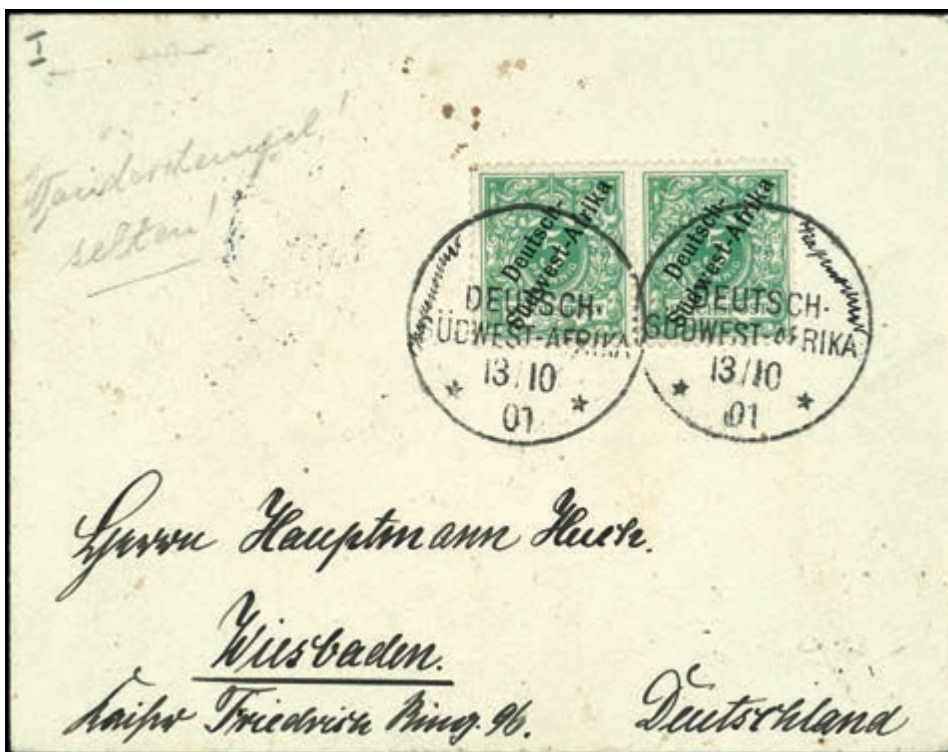 I
Wanderstempel!
selten!
Deutsch-
Südwest-Afrika
Deutsch-
Südwest-Afrika
DEUTSCH-
ÜDWEST-AFRIKA
13/10
01
DEUTSCH-
SÜDWEST-AFRIKA
13/10
01
Herrn Hauptmann Huch.
Wiesbaden.
Kaiser Friedrich Ring. 96.
Deutschland